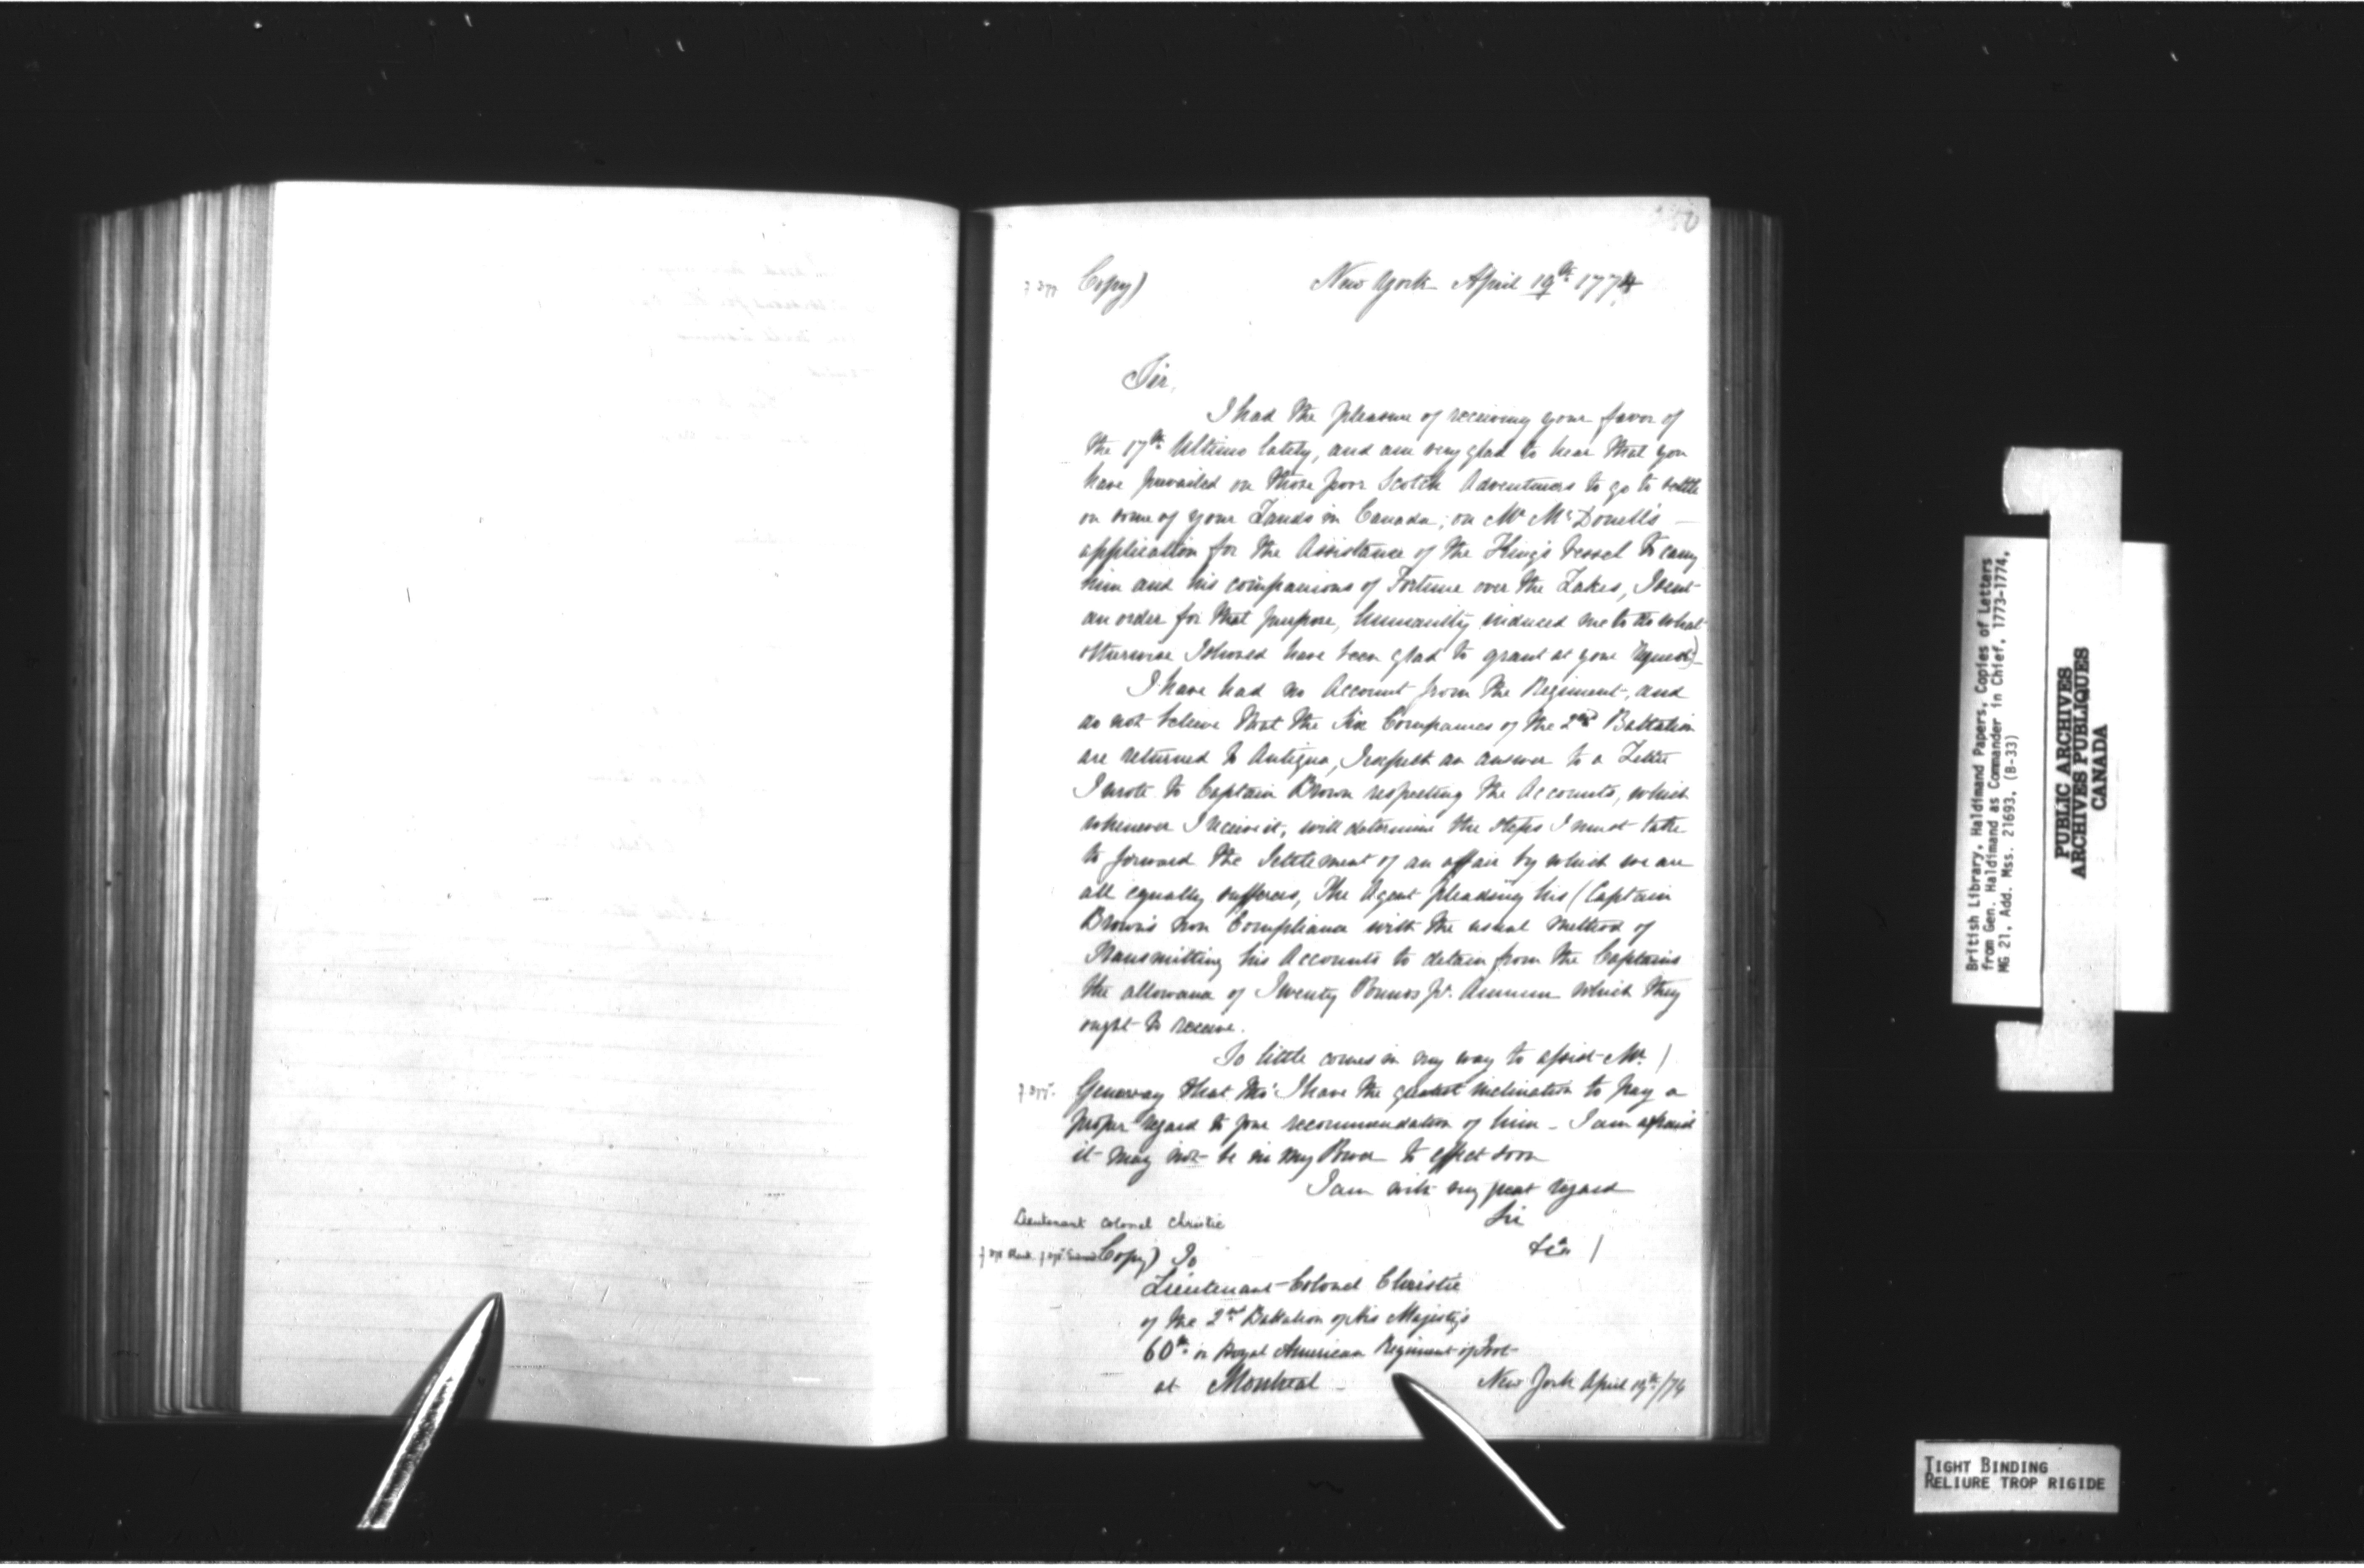 Copy) New York April 19th. 1774
Sir,
I had the pleasure of receiving your favor of
the 17th. Ultimo lately, and am very glad to hear that you
have prevailed on those poor Scotch Adventurers to go to settle
on some of your Lands in Canada; on Mr McDonell's
application for the Assistance of the King's Vessel to carry
him and his companions of Fortune over the Lakes, I sent
an order for that purpose, humanity induced me to do what
otherwise I should have been glad to grant at your request)
I have had no Account from the Regiment, and
do not believe that the Six Companies of the 2nd Battalion
are returned to Antigua, I expect an answer to a Letter
I wrote to Captain Brown respecting the Accounts, which
whenever I receive it, will determine the steps I must take
to forward the Settlement of an affair by which we are
all equally sufferers, The Agent pleading his (Captain
Brown's non Compliance with the usual method of
Transmitting his Accounts to detain from the Captains
the allowance of Twenty Pounds pr. Annum which they
ought to receive.
So little comes in my way to assist Mr. /
that tho' I have the greatest inclination to pay a
proper regard to your recommendation of him - I am afraid
it may not be in my Power to effect soon
I am with very great regard
Sir
&ca /
Lieutenant Colonel Christie
Copy) To
Lieutenant-Colonel Christie
of the 2nd Battalion of His Majesty's
60th. or Royal American Regiment of Foot
at Montreal -
New York April 19th./74
British Library, Haldimand Papers, Copies of Letters
from Gen. Haldimand as Commander in Chief, 1773-1774,
MG 21, Add. Mss. 21693, (B-33)
PUBLIC ARCHIVES
ARCHIVES PUBLIQUES
CANADA
TIGHT BINDING
RELIURE TROP RIGIDE